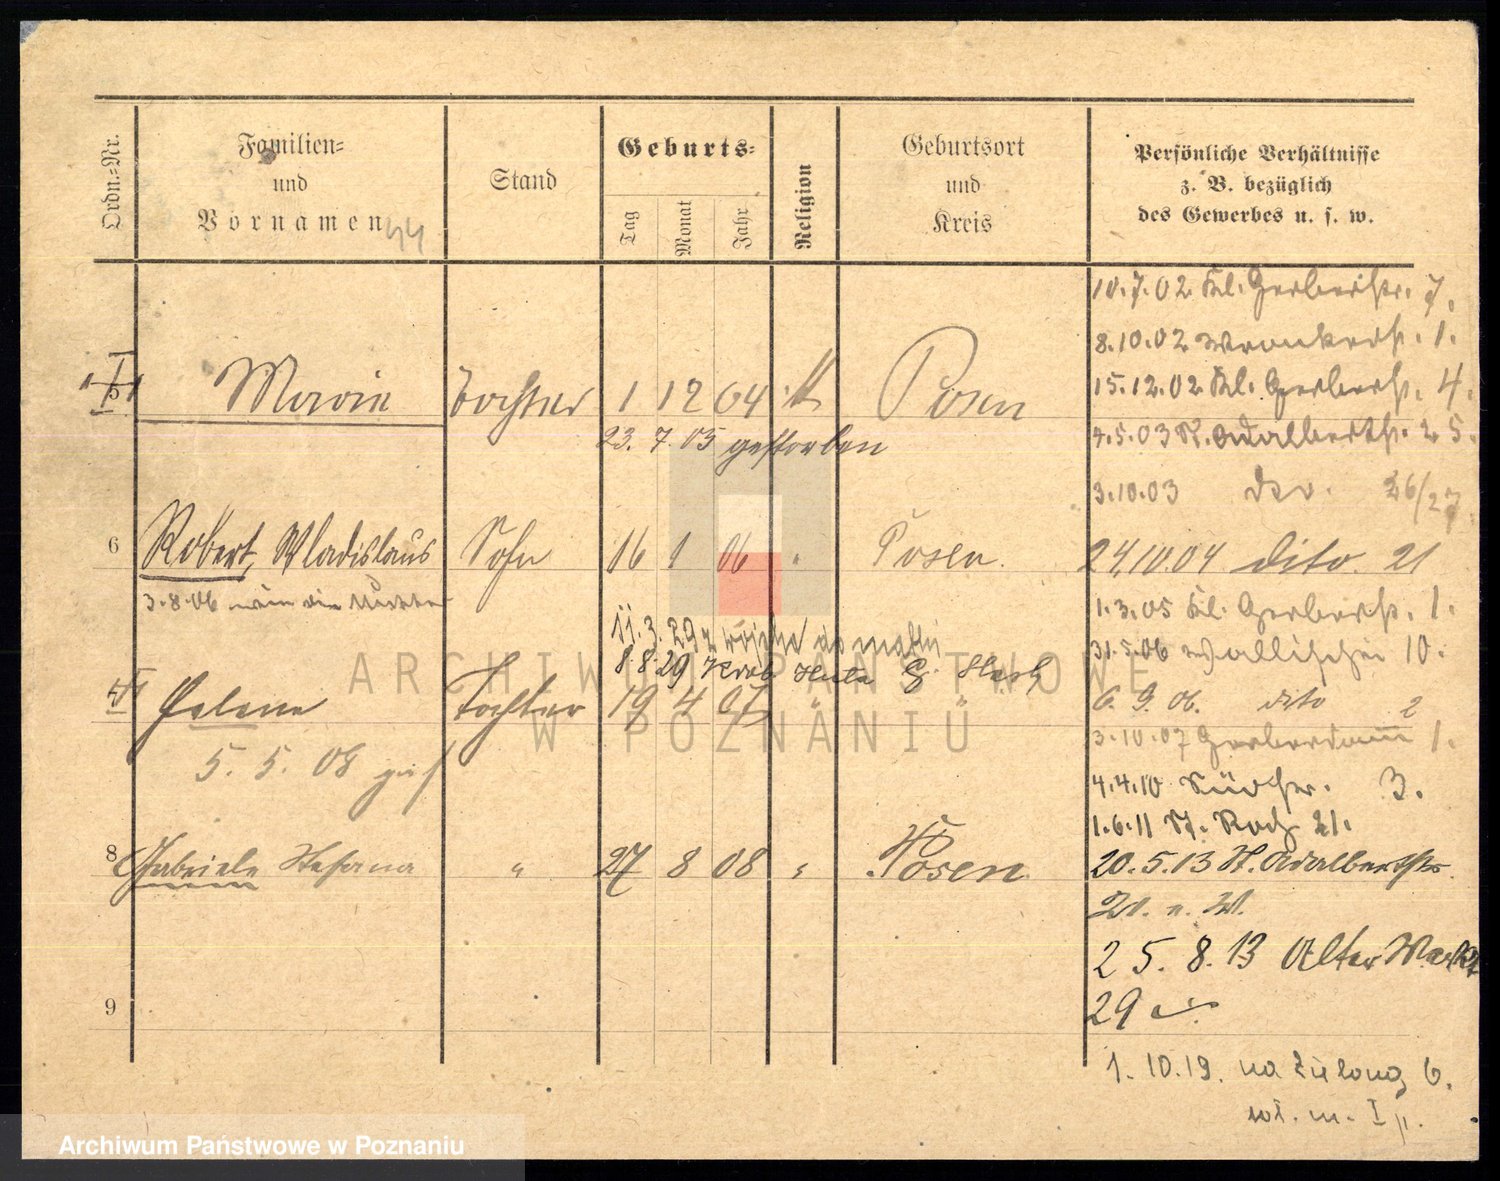 Ordn.-Nr.
Familien-
und
Vornamen
44
Stand
Geburts-
Tag
Monat
Jahr
Religion
Geburtsort
und
Kreis
Persönliche Verhältnisse
z. B. bezüglich
des Gewerbes u. s. w.
5 Marie Tochter 1 12 04 Posen
23. 7. 05 gestorben
6 Robert, Wladislaus Sohn 16 1 06 " Posen.
3.8.06
11.3.29
8.8.29 Huta
Helene Tochter 19 4 07 "
5. 5. 08 gest
8 Gabriele Stefana " 27 8 08 " Posen
9
10.7.02 Kl. Gerberstr. 7.
8.10.02 Wronkerstr. 1.
15.12.02 Kl. Gerberstr. 4.
4.5.03 St. Adalbertstr. 25.
3.10.03 do. 26/27.
24.10.04 dito. 21
1.3.05 Kl. Gerberstr. 1.
31.5.06 Wallischei 10.
6.9.06. dito 2
3.10.07 Gerberdamm 1.
4.4.10 3.
1.6.11 21.
20.5.13 St. Adalbertstr.
25.8.13 Alter Markt
29
1.10.19. na Zieloną 6.
ARCHIWUM PAŃSTWOWE
W POZNANIU
Archiwum Państwowe w Poznaniu